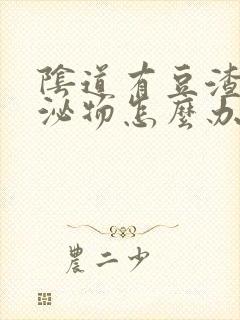 陰道有豆渣
泌物怎麼办
農二少